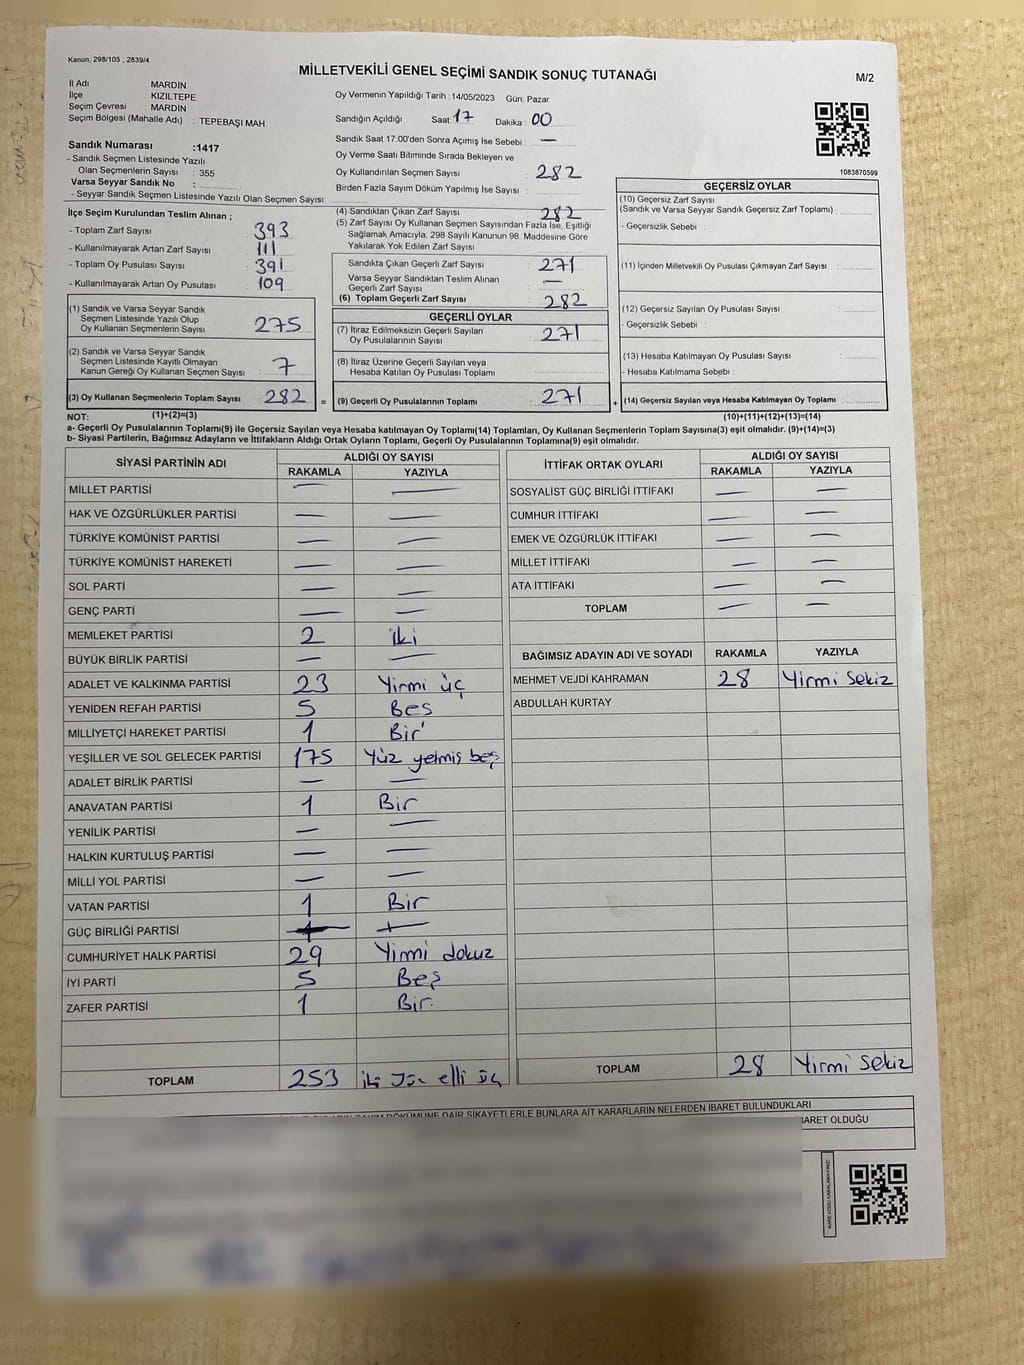 Kanun, 298/105 , 2839/4
MİLLETVEKİLİ GENEL SEÇİMİ SANDIK SONUÇ TUTANAĞI
M/2
İl Adı : MARDİN
İlçe : KIZILTEPE
Seçim Çevresi : MARDİN
Seçim Bölgesi (Mahalle Adı) : TEPEBAŞI MAH.
Sandık Numarası :1417
- Sandık Seçmen Listesinde Yazılı
Olan Seçmenlerin Sayısı : 355
Varsa Seyyar Sandık No :
- Seyyar Sandık Seçmen Listesinde Yazılı Olan Seçmen Sayısı:
Oy Vermenin Yapıldığı Tarih :14/05/2023 Gün: Pazar
Sandığın Açıldığı Saat: 17 Dakika: 00
Sandık Saat 17:00'den Sonra Açımış İse Sebebi : —
Oy Verme Saati Bitiminde Sırada Bekleyen ve
Oy Kullandırılan Seçmen Sayısı : 282
Birden Fazla Sayım Döküm Yapılmış İse Sayısı :
1083870599
İlçe Seçim Kurulundan Teslim Alınan ;
- Toplam Zarf Sayısı : 393
- Kullanılmayarak Artan Zarf Sayısı : 111
- Toplam Oy Pusulası Sayısı : 391
- Kullanılmayarak Artan Oy Pusulası : 109
(1) Sandık ve Varsa Seyyar Sandık
Seçmen Listesinde Yazılı Olup
Oy Kullanan Seçmenlerin Sayısı : 275
(2) Sandık ve Varsa Seyyar Sandık
Seçmen Listesinde Kayıtlı Olmayan
Kanun Gereği Oy Kullanan Seçmen Sayısı : 7
(3) Oy Kullanan Seçmenlerin Toplam Sayısı : 282 =
(4) Sandıktan Çıkan Zarf Sayısı : 282
(5) Zarf Sayısı Oy Kullanan Seçmen Sayısından Fazla İse, Eşitliği
Sağlamak Amacıyla; 298 Sayılı Kanunun 98. Maddesine Göre
Yakılarak Yok Edilen Zarf Sayısı :
Sandıkta Çıkan Geçerli Zarf Sayısı : 271
Varsa Seyyar Sandıktan Teslim Alınan
Geçerli Zarf Sayısı : —
(6) Toplam Geçerli Zarf Sayısı : 282
GEÇERLİ OYLAR
(7) İtiraz Edilmeksizin Geçerli Sayılan
Oy Pusulalarının Sayısı : 271
(8) İtiraz Üzerine Geçerli Sayılan veya
Hesaba Katılan Oy Pusulası Toplamı :
(9) Geçerli Oy Pusulalarının Toplamı : 271 +
GEÇERSİZ OYLAR
(10) Geçersiz Zarf Sayısı
(Sandık ve Varsa Seyyar Sandık Geçersiz Zarf Toplamı) :
- Geçersizlik Sebebi :
(11) İçinden Milletvekili Oy Pusulası Çıkmayan Zarf Sayısı :
(12) Geçersiz Sayılan Oy Pusulası Sayısı :
- Geçersizlik Sebebi :
(13) Hesaba Katılmayan Oy Pusulası Sayısı :
- Hesaba Katılmama Sebebi :
(14) Geçersiz Sayılan veya Hesaba Katılmayan Oy Toplamı :
NOT: (1)+(2)=(3) (10)+(11)+(12)+(13)=(14)
a- Geçerli Oy Pusulalarının Toplamı(9) ile Geçersiz Sayılan veya Hesaba katılmayan Oy Toplamı(14) Toplamları, Oy Kullanan Seçmenlerin Toplam Sayısına(3) eşit olmalıdır. (9)+(14)=(3)
b- Siyasi Partilerin, Bağımsız Adayların ve İttifakların Aldığı Ortak Oyların Toplamı, Geçerli Oy Pusulalarının Toplamına(9) eşit olmalıdır.
SİYASİ PARTİNİN ADI ALDIĞI OY SAYISI
RAKAMLA YAZIYLA
MİLLET PARTİSİ — —
HAK VE ÖZGÜRLÜKLER PARTİSİ — —
TÜRKİYE KOMÜNİST PARTİSİ — —
TÜRKİYE KOMÜNİST HAREKETİ — —
SOL PARTİ — —
GENÇ PARTİ — —
MEMLEKET PARTİSİ 2 iki
BÜYÜK BİRLİK PARTİSİ — —
ADALET VE KALKINMA PARTİSİ 23 Yirmi üç
YENİDEN REFAH PARTİSİ 5 Bes
MİLLİYETÇİ HAREKET PARTİSİ 1 Bir
YEŞİLLER VE SOL GELECEK PARTİSİ 175 Yüz yetmiş beş
ADALET BİRLİK PARTİSİ — —
ANAVATAN PARTİSİ 1 Bir
YENİLİK PARTİSİ — —
HALKIN KURTULUŞ PARTİSİ — —
MİLLİ YOL PARTİSİ — —
VATAN PARTİSİ 1 Bir
GÜÇ BİRLİĞİ PARTİSİ — —
CUMHURİYET HALK PARTİSİ 29 Yirmi dokuz
İYİ PARTİ 5 Beş
ZAFER PARTİSİ 1 Bir
TOPLAM 253 iki yüz elli üç
İTTİFAK ORTAK OYLARI ALDIĞI OY SAYISI
RAKAMLA YAZIYLA
SOSYALİST GÜÇ BİRLİĞİ İTTİFAKI — —
CUMHUR İTTİFAKI — —
EMEK VE ÖZGÜRLÜK İTTİFAKI — —
MİLLET İTTİFAKI — —
ATA İTTİFAKI — —
TOPLAM — —
BAĞIMSIZ ADAYIN ADI VE SOYADI RAKAMLA YAZIYLA
MEHMET VEJDİ KAHRAMAN 28 Yirmi Sekiz
ABDULLAH KURTAY
TOPLAM 28 Yirmi Sekiz
DÖKÜMÜNE DAİR ŞİKAYETLERLE BUNLARA AİT KARARLARIN NELERDEN İBARET BULUNDUKLARI
İBARET OLDUĞU
KARE KODU KARALAMAYINIZ!